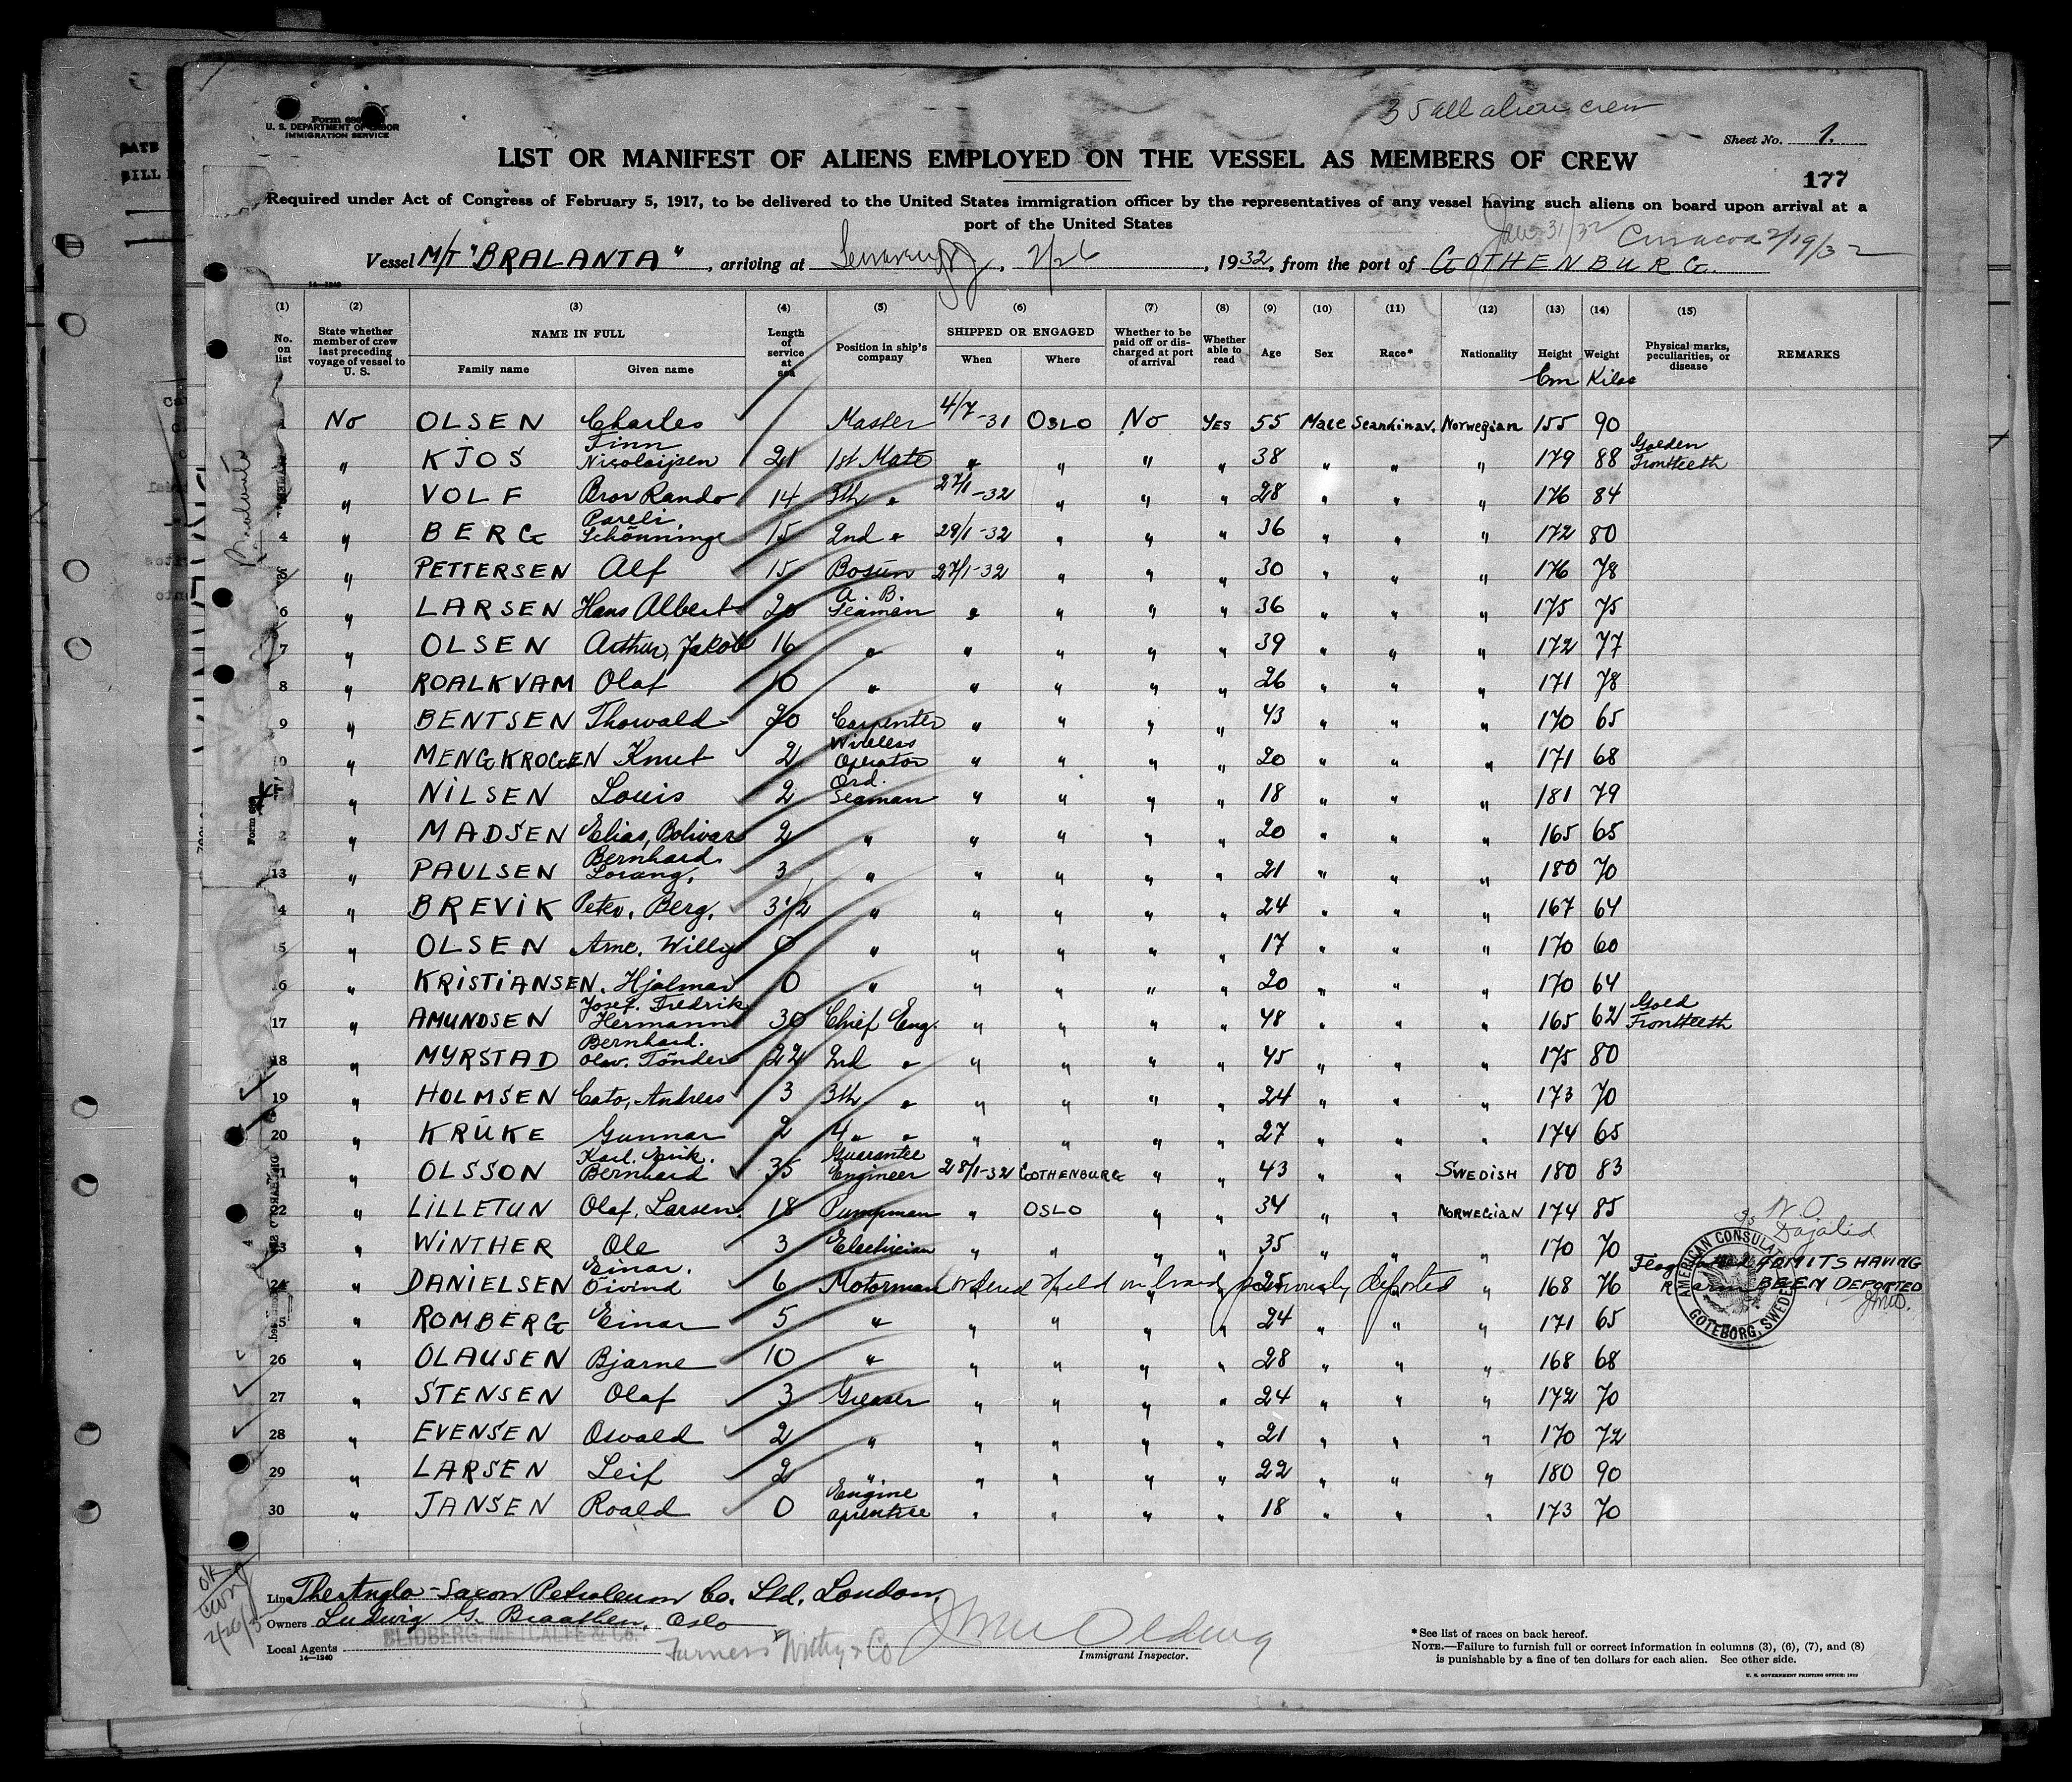 35 all alien crew
Form 680
U. S. DEPARTMENT OF LABOR
IMMIGRATION SERVICE
Sheet No. 1.
LIST OR MANIFEST OF ALIENS EMPLOYED ON THE VESSEL AS MEMBERS OF CREW
177
Required under Act of Congress of February 5, 1917, to be delivered to the United States immigration officer by the representatives of any vessel having such aliens on board upon arrival at a
port of the United States
Jan 31/32 Curacoa 2/19/32
Vessel M/T "BRALANTA", arriving at , 2/26, 1932, from the port of GOTHENBURG.
14—1240
(1) (2) (3) (4) (5) (6) (7) (8) (9) (10) (11) (12) (13) (14) (15)
No. on list State whether member of crew last preceding voyage of vessel to U. S. NAME IN FULL Family name Given name Length of service at sea Position in ship's company SHIPPED OR ENGAGED When Where Whether to be paid off or discharged at port of arrival Whether able to read Age Sex Race* Nationality Height Cm Weight Kilos Physical marks, peculiarities, or disease REMARKS
1 No OLSEN Charles Master 4/7-31 OSLO No YES 55 Male Scandinav. Norwegian 155 90
" KJOS Finn Nicolaijsen 21 1st Mate " " " " 38 " " " 179 88 Golden Frontteeth
" VOLF Bror Rando 14 3th " 27/1-32 " " " 28 " " " 176 84
4 " BERG Pareli, Schönninge 15 2nd " 29/1-32 " " " 36 " " " 172 80
5 " PETTERSEN Alf 15 Bosun 27/1-32 " " " 30 " " " 176 78
6 " LARSEN Hans Albert 20 A.B. Seaman " " " " 36 " " " 175 75
7 " OLSEN Arthur, Jakob 16 " " " " " 39 " " " 172 77
8 " ROALKVAM Olaf 10 " " " " " 26 " " " 171 78
9 " BENTSEN Thorvald 20 Carpenter " " " " 43 " " " 170 65
0 " MENGKROGEN Knut 2 Wireless Operator " " " " 20 " " " 171 68
" NILSEN Louis 2 Ord. Seaman " " " " 18 " " " 181 79
2 " MADSEN Elias, Bolivar 2 " " " " " 20 " " " 165 65
13 " PAULSEN Bernhard Lorang, 3 " " " " " 21 " " " 180 70
4 " BREVIK Peter. Berg, 3 1/2 " " " " " 24 " " " 167 64
5 " OLSEN Arne. Willy 0 " " " " " 17 " " " 170 60
6 " KRISTIANSEN. Hjalmar 0 " " " " " 20 " " " 170 64
17 " AMUNDSEN Josef. Fredrik Hermann 30 Chief Eng. " " " " 48 " " " 165 62 Gold Frontteeth
18 " MYRSTAD Bernhard. Olav. Tönder 22 2nd " " " " " 45 " " " 175 80
19 " HOLMSEN Cato, Andreas 3 3th " " " " " 24 " " " 173 70
20 " KRÜKE Gunnar 2 4 " " " " " " 27 " " " 174 65
1 " OLSSON Karl. Erik. Bernhard 35 Guarantee Engineer 28/1-32 GOTHENBURG " " 43 " " SWEDISH 180 83
22 " LILLETUN Olaf. Larsen. 18 Pumpman " OSLO " " 34 " " NORWEGIAN 174 85
23 " WINTHER Ole 3 Electrician " " " " 35 " " " 170 70
24 " DANIELSEN Einar. Öivind 6 Motorman Ordered Held on board previously deported 25 " 168 76 ADMITS HAVING BEEN DEPORTED
5 " ROMBERG Einar 5 " " " " " 24 " " " 171 65
26 " OLAUSEN Bjarne 10 " " " " " 28 " " " 168 68
27 " STENSEN Olaf 3 Greaser " " " " 24 " " " 172 70
28 " EVENSEN Osvald 2 " " " " " 21 " " " 170 72
29 " LARSEN Leif 2 " " " " " 22 " " " 180 90
30 " JANSEN Roald 0 Engine aprentice " " " " 18 " " " 173 70
AMERICAN CONSULATE
GOTEBORG, SWEDEN
Line The Anglo-Saxon Petroleum Co. Ltd, London.
Owners Ludwig G. Braathen, Oslo
Local Agents BLIDBERG, METCALFE & Co. Furness Withy & Co
14—1240
Immigrant Inspector.
* See list of races on back hereof.
NOTE.—Failure to furnish full or correct information in columns (3), (6), (7), and (8)
is punishable by a fine of ten dollars for each alien. See other side.
U. S. GOVERNMENT PRINTING OFFICE: 1929
OK
2/26/3
Bralanta